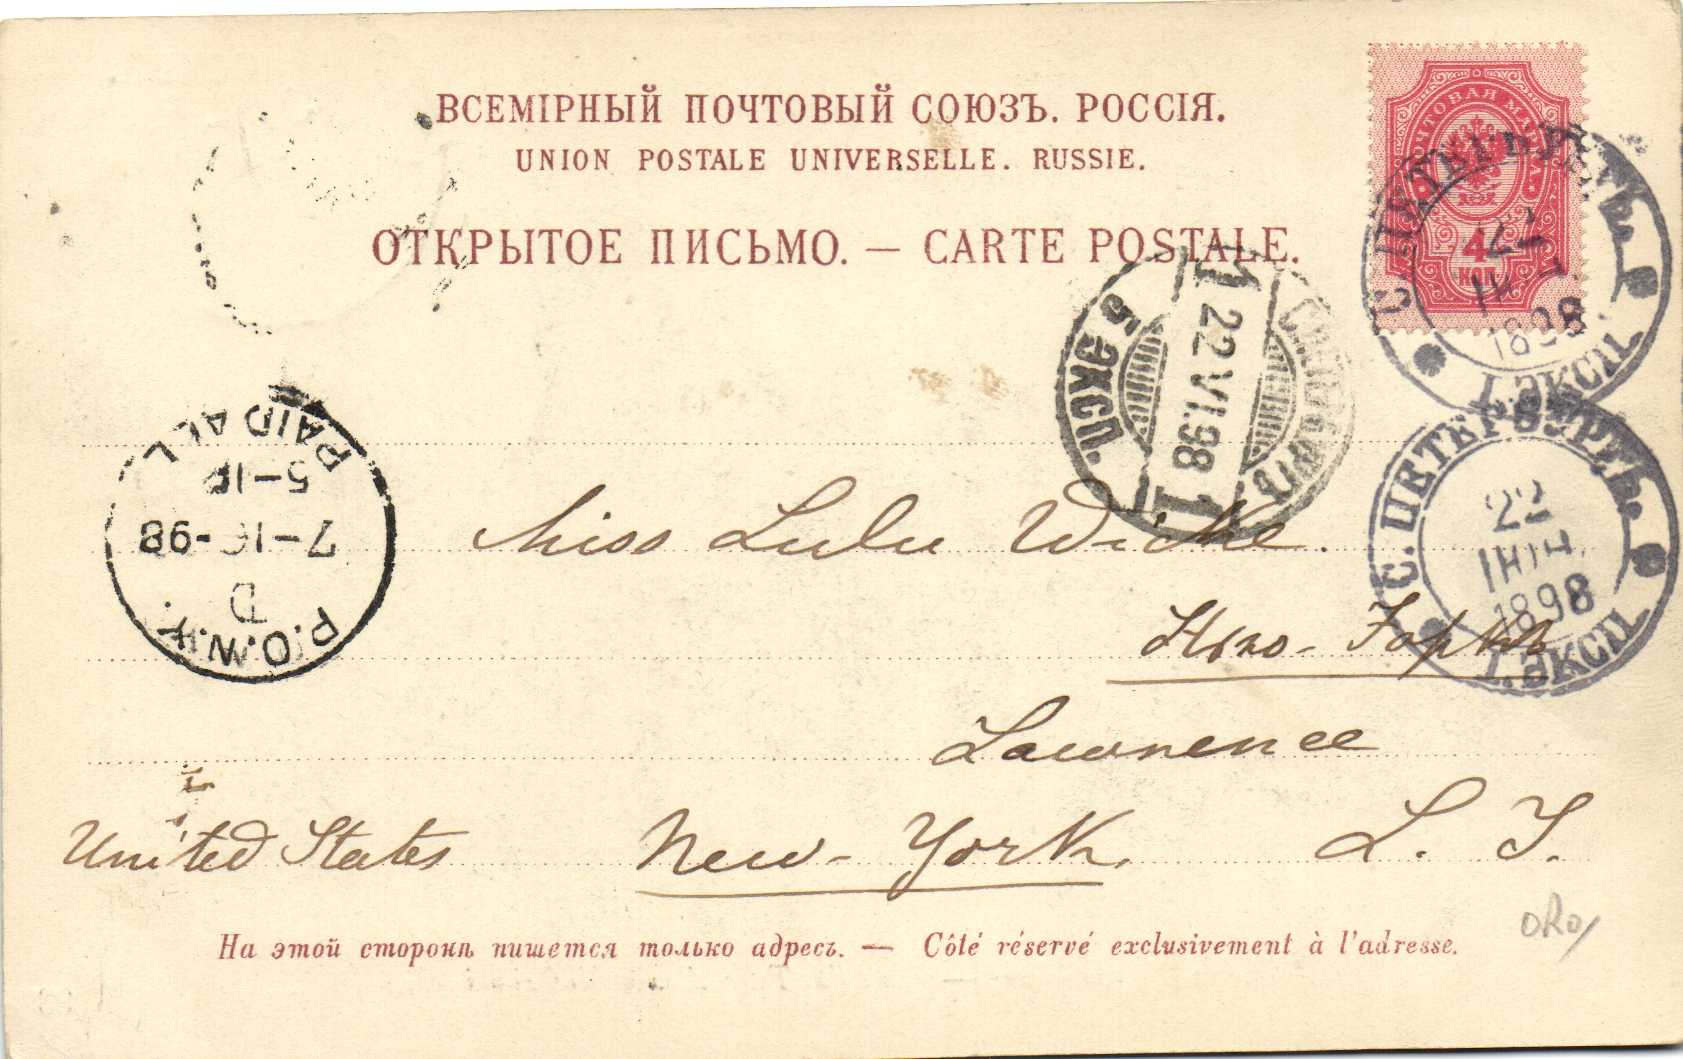 ВСЕМІРНЫЙ ПОЧТОВЫЙ СОЮЗЪ. РОССІЯ.
UNION POSTALE UNIVERSELLE. RUSSIE.
ОТКРЫТОЕ ПИСЬМО. — CARTE POSTALE.
ПОЧТОВАЯ МАРКА
4
КОП.
С. ПЕТЕРБУРГЪ.
22
ІЮН
1898
1. ЭКСП.
5 ЭКСП.
1 22 VI.98 1
С. ПЕТЕРБУРГЪ.
22
ІЮН
1898
1. ЭКСП.
P.O.N.Y.
D
7-1 -98
5-1
PAID ALL
Miss Lulu Wicke.
Нью-Іоркъ
Lawrence
United States New-York. L. I.
На этой сторонѣ пишется только адресъ. — Côté réservé exclusivement à l'adresse.